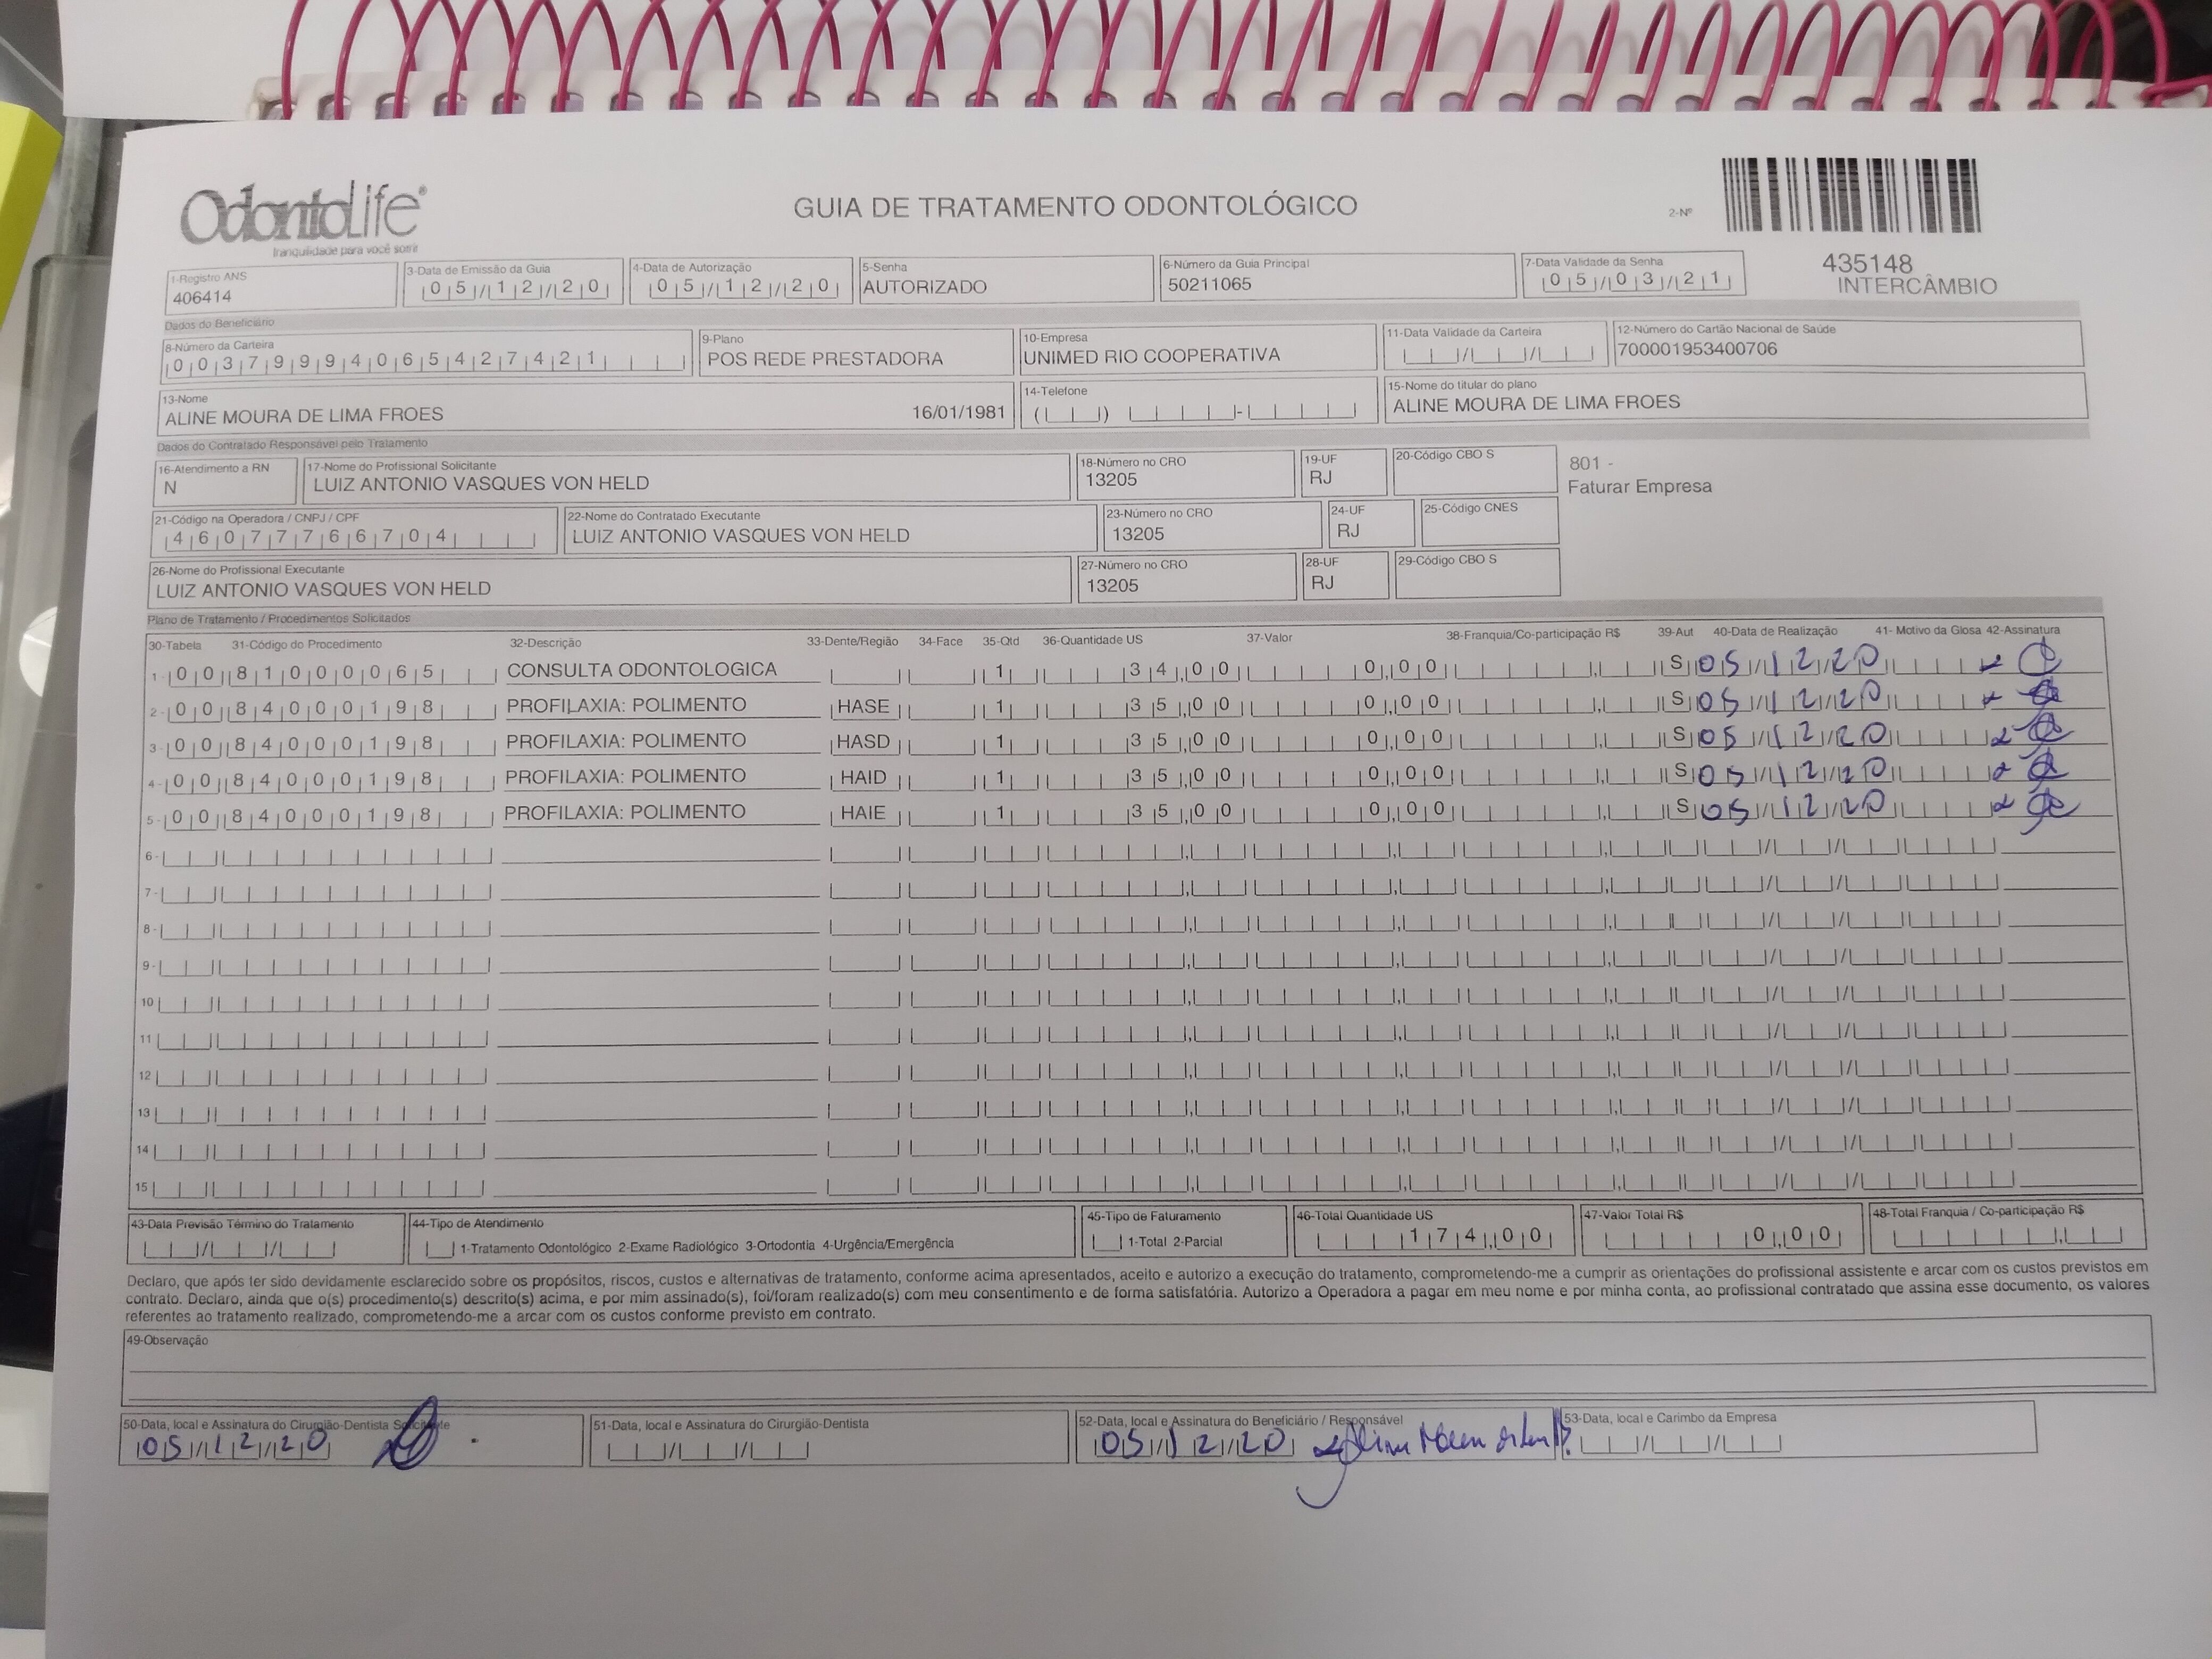 OdontoLife®
tranquilidade para você sorrir
GUIA DE TRATAMENTO ODONTOLÓGICO
2-Nº
435148
INTERCÂMBIO
1-Registro ANS
406414
3-Data de Emissão da Guia
05/12/20
4-Data de Autorização
05/12/20
5-Senha
AUTORIZADO
6-Número da Guia Principal
50211065
7-Data Validade da Senha
05/03/21
Dados do Beneficiário
8-Número da Carteira
00379994065427421
9-Plano
POS REDE PRESTADORA
10-Empresa
UNIMED RIO COOPERATIVA
11-Data Validade da Carteira
12-Número do Cartão Nacional de Saúde
700001953400706
13-Nome
ALINE MOURA DE LIMA FROES 16/01/1981
14-Telefone
15-Nome do titular do plano
ALINE MOURA DE LIMA FROES
Dados do Contratado Responsável pelo Tratamento
16-Atendimento a RN
N
17-Nome do Profissional Solicitante
LUIZ ANTONIO VASQUES VON HELD
18-Número no CRO
13205
19-UF
RJ
20-Código CBO S
801 -
Faturar Empresa
21-Código na Operadora / CNPJ / CPF
46077766704
22-Nome do Contratado Executante
LUIZ ANTONIO VASQUES VON HELD
23-Número no CRO
13205
24-UF
RJ
25-Código CNES
26-Nome do Profissional Executante
LUIZ ANTONIO VASQUES VON HELD
27-Número no CRO
13205
28-UF
RJ
29-Código CBO S
Plano de Tratamento / Procedimentos Solicitados
30-Tabela 31-Código do Procedimento 32-Descrição 33-Dente/Região 34-Face 35-Qtd 36-Quantidade US 37-Valor 38-Franquia/Co-participação R$ 39-Aut 40-Data de Realização 41- Motivo da Glosa 42-Assinatura
1- 00 81000065 CONSULTA ODONTOLOGICA 1 34,00 0,00 S 05/12/20
2- 00 84000198 PROFILAXIA: POLIMENTO HASE 1 35,00 0,00 S 05/12/20
3- 00 84000198 PROFILAXIA: POLIMENTO HASD 1 35,00 0,00 S 05/12/20
4- 00 84000198 PROFILAXIA: POLIMENTO HAID 1 35,00 0,00 S 05/12/20
5- 00 84000198 PROFILAXIA: POLIMENTO HAIE 1 35,00 0,00 S 05/12/20
6-
7-
8-
9-
10
11
12
13
14
15
43-Data Previsão Término do Tratamento
44-Tipo de Atendimento
1-Tratamento Odontológico 2-Exame Radiológico 3-Ortodontia 4-Urgência/Emergência
45-Tipo de Faturamento
1-Total 2-Parcial
46-Total Quantidade US
174,00
47-Valor Total R$
0,00
48-Total Franquia / Co-participação R$
Declaro, que após ter sido devidamente esclarecido sobre os propósitos, riscos, custos e alternativas de tratamento, conforme acima apresentados, aceito e autorizo a execução do tratamento, comprometendo-me a cumprir as orientações do profissional assistente e arcar com os custos previstos em
contrato. Declaro, ainda que o(s) procedimento(s) descrito(s) acima, e por mim assinado(s), foi/foram realizado(s) com meu consentimento e de forma satisfatória. Autorizo a Operadora a pagar em meu nome e por minha conta, ao profissional contratado que assina esse documento, os valores
referentes ao tratamento realizado, comprometendo-me a arcar com os custos conforme previsto em contrato.
49-Observação
50-Data, local e Assinatura do Cirurgião-Dentista Solicitante
05/12/20
51-Data, local e Assinatura do Cirurgião-Dentista
52-Data, local e Assinatura do Beneficiário / Responsável
05/12/20
53-Data, local e Carimbo da Empresa